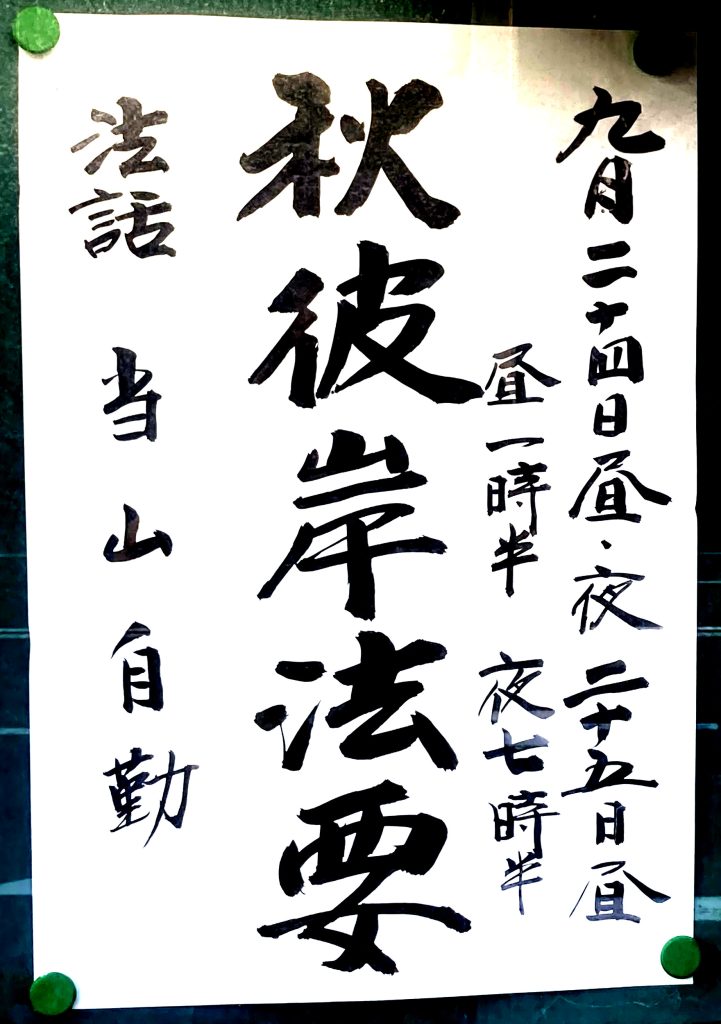 九月二十四日昼、夜 二十五日昼
昼一時半 夜七時半
秋彼岸法要
法話 当山自勤